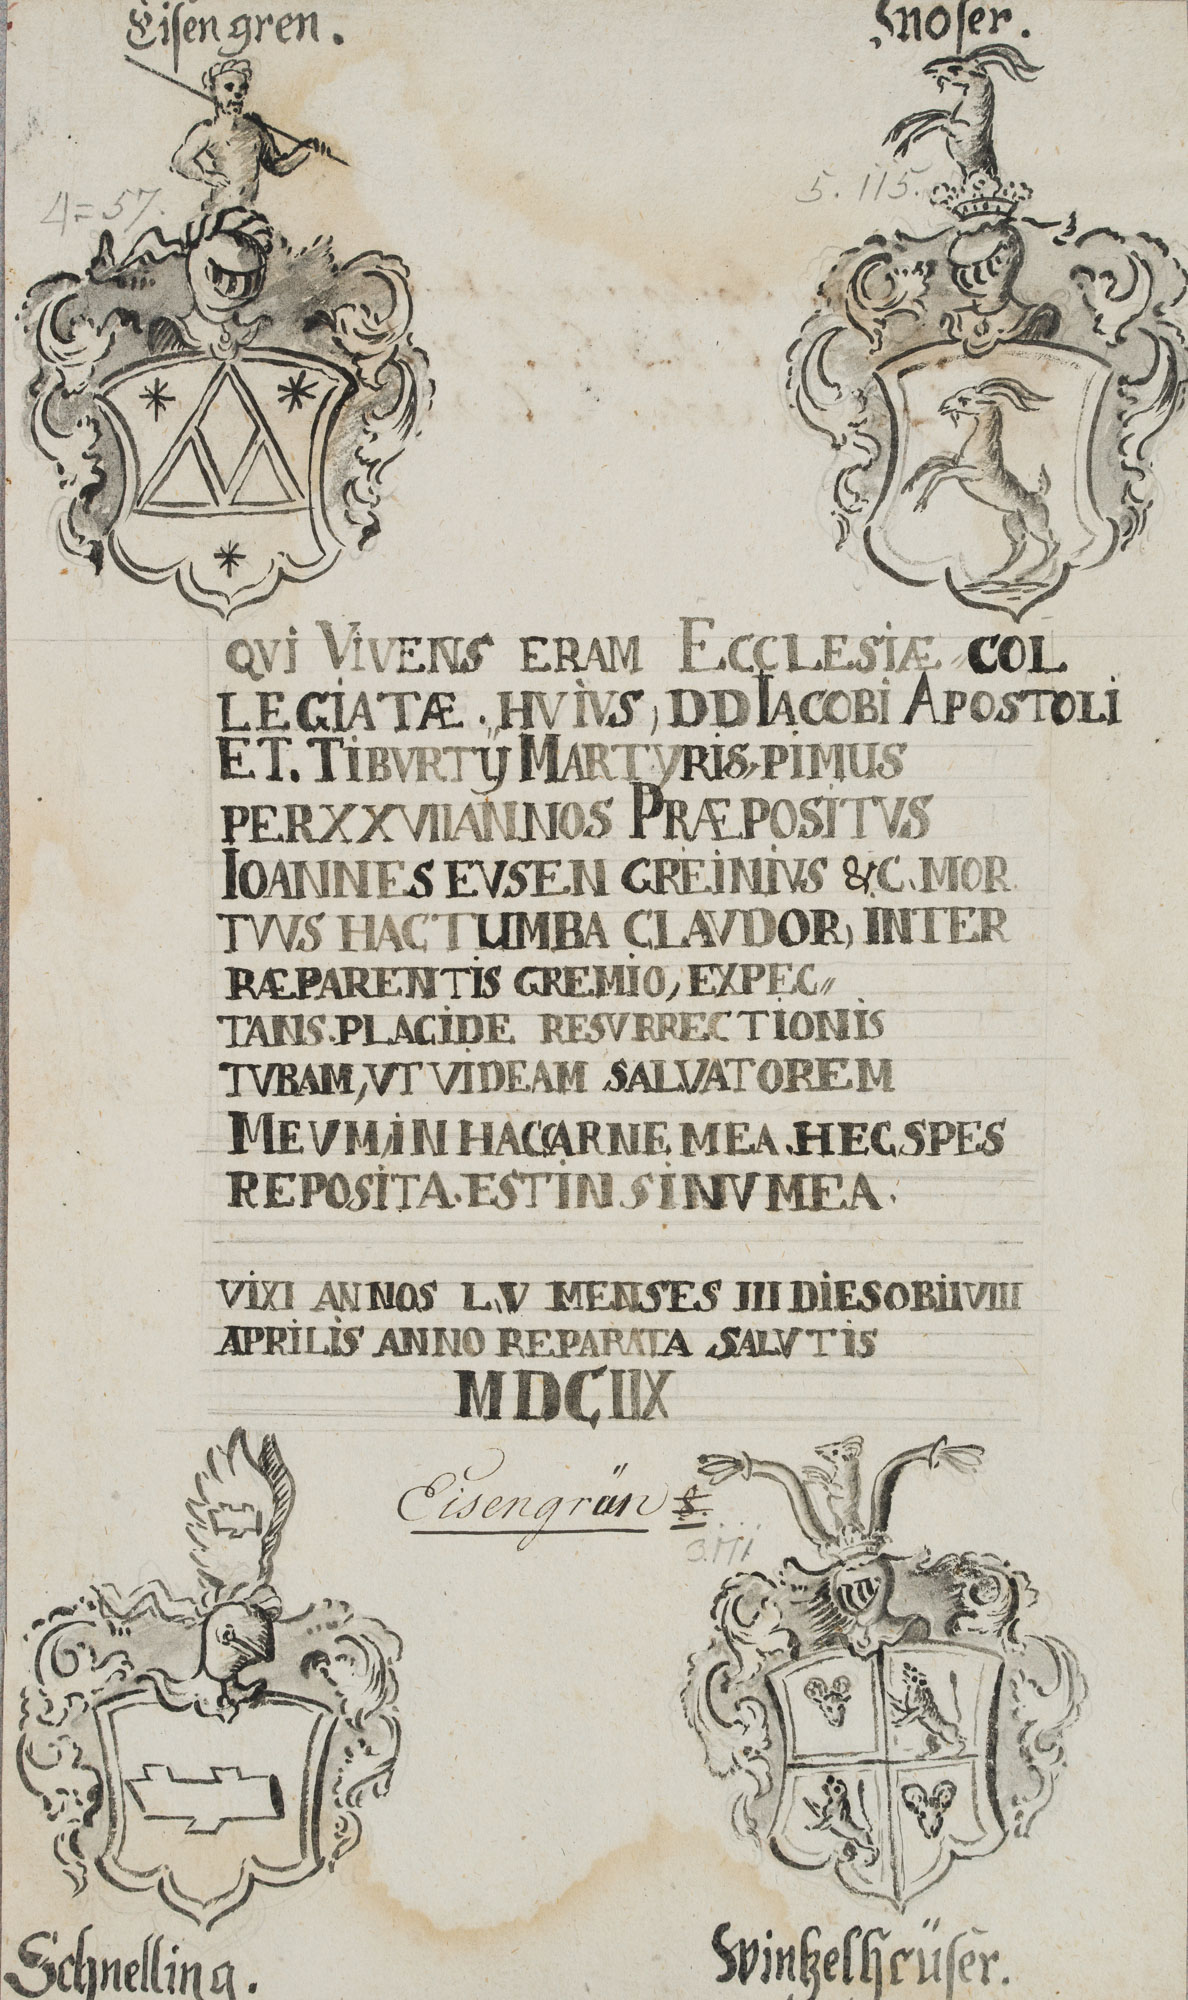 Eisengren.
4=57.
5. 115.
QVI VIVENS ERAM ECCLESIÆ COL
LEGIATÆ. HVIVS, DD IACOBI APOSTOLI
ET. TIBVRTIJ MARTYRIS, PIMUS
PER XXVII ANNOS PRÆPOSITVS
IOANNES EVSEN GREINIVS &C. MOR
TVVS HAC TUMBA CLAVDOR, INTER
RÆ PARENTIS GREMIO, EXPEC=
TANS. PLACIDE RESVRRECTIONIS
TVBAM, VT VIDEAM SALVATOREM
MEVM, IN HAC CARNE MEA. HEC SPES
REPOSITA. EST IN SINV MEA.
VIXI ANNOS L.V MENSES III DIES OBII VIII
APRILIS ANNO REPARATA SALVTIS
MDCIIX
Eisengrün
Schnelling.
Winkelhäüser.